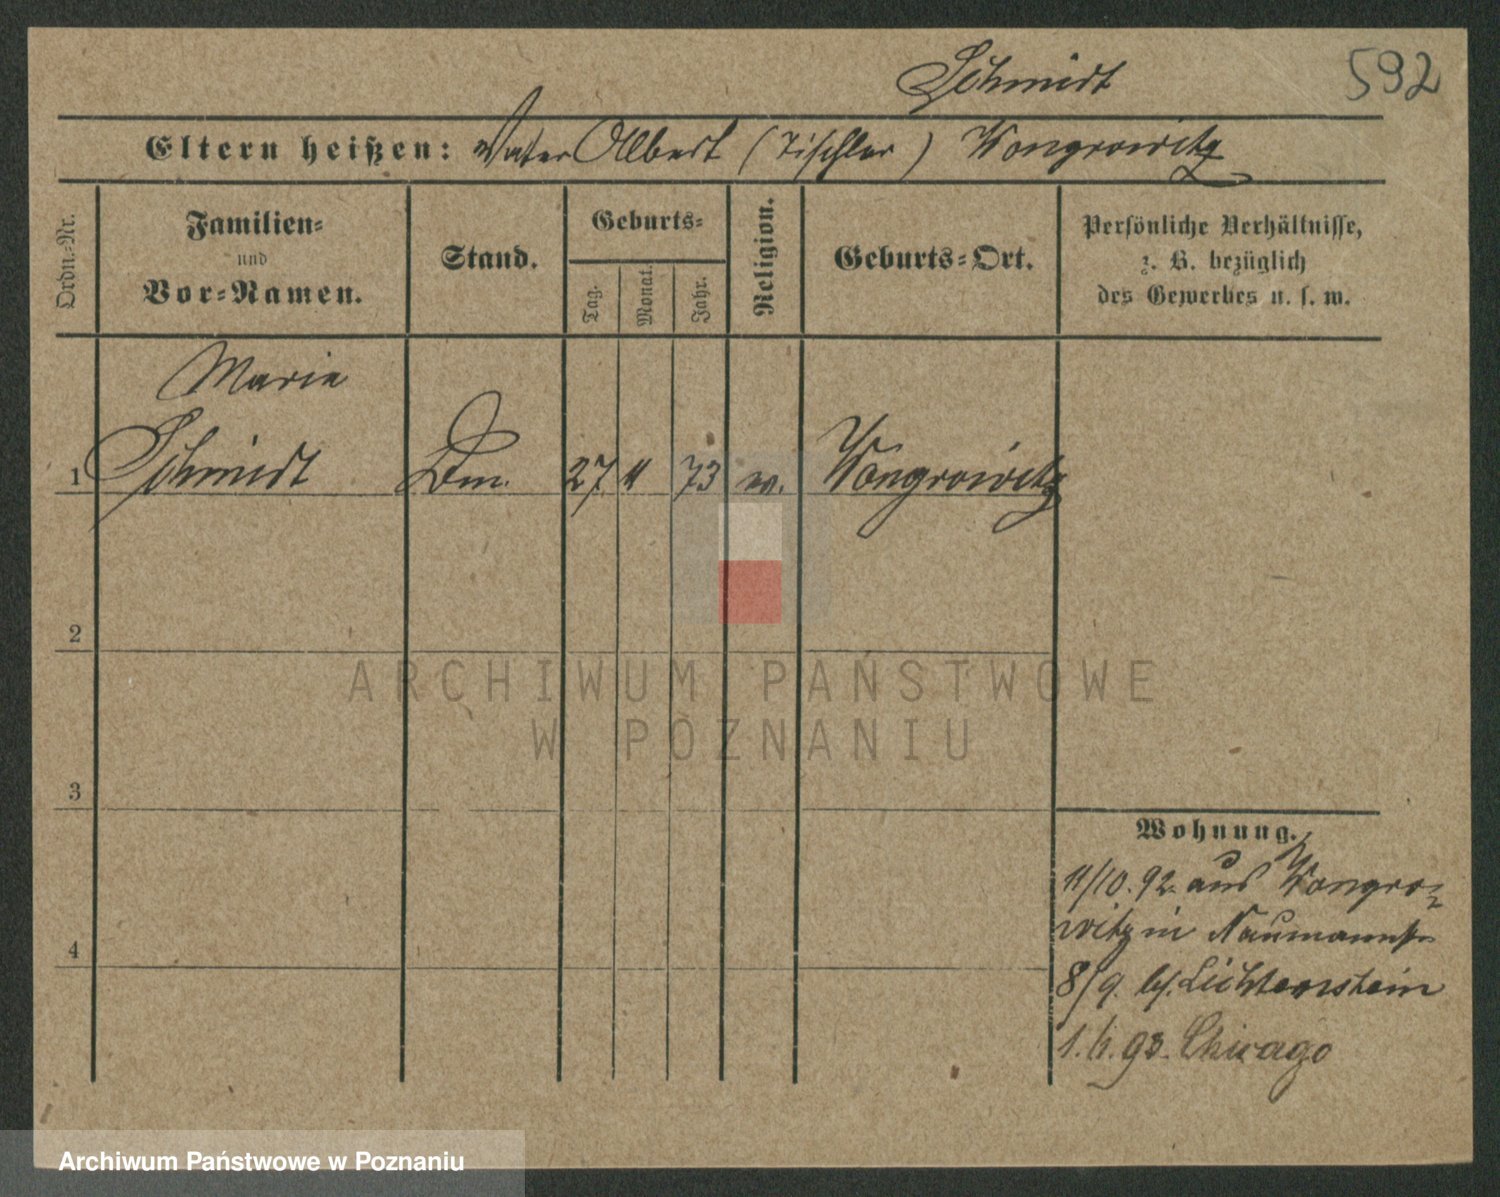 Schmidt
592
Eltern heißen: Vater Albert (Tischler) Wongrowitz
Ordn.-Nr.
Familien-
und
Vor-Namen.
Stand.
Geburts-
Tag.
Monat.
Jahr.
Religion.
Geburts-Ort.
Persönliche Verhältnisse,
z. B. bezüglich
des Gewerbes u. s. w.
Marie
1 Schmidt 27 73 Wongrowitz
2
3
4
ARCHIWUM PAŃSTWOWE
W POZNANIU
Wohnung.
11/10. 92. aus Wongro-
witz in Naumannstr.
8/9. bei Lichtenstein
93. Chicago
Archiwum Państwowe w Poznaniu